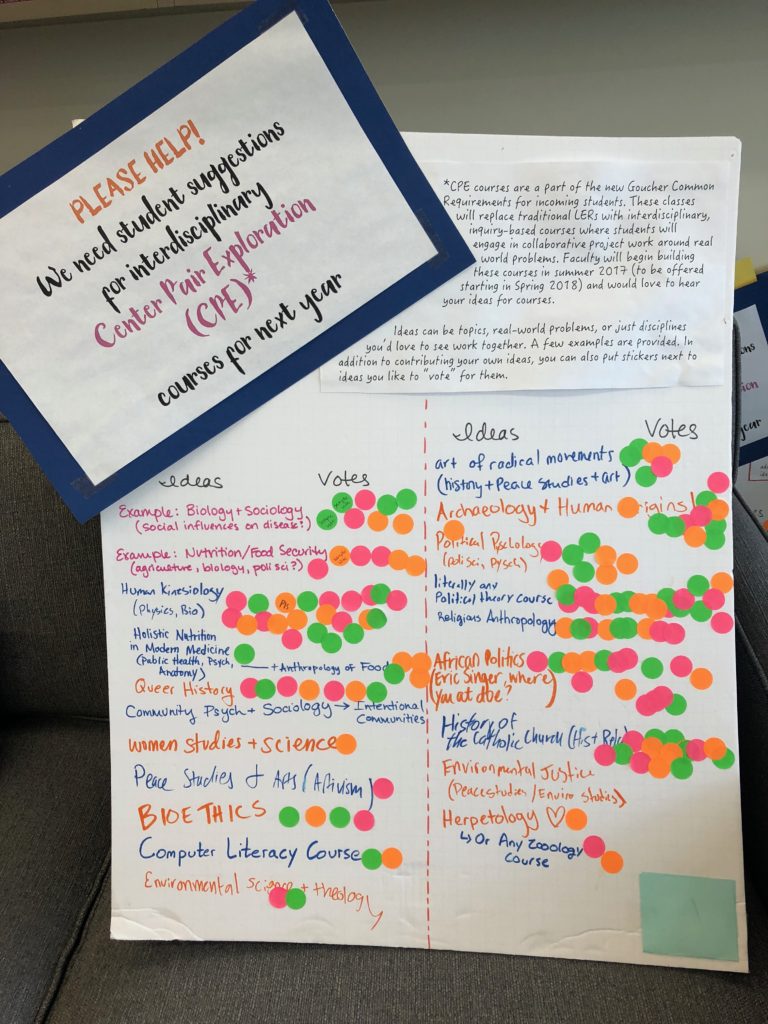 PLEASE HELP!
We need student suggestions
for interdisciplinary
Center Pair Exploration
(CPE)*
courses for next year
*CPE courses are a part of the new Goucher Common
Requirements for incoming students. These classes
will replace traditional LERs with interdisciplinary,
inquiry-based courses where students will
engage in collaborative project work around real
world problems. Faculty will begin building
these courses in summer 2017 (to be offered
starting in Spring 2018) and would love to hear
your ideas for courses.
Ideas can be topics, real-world problems, or just disciplines
you'd love to see work together. A few examples are provided. In
addition to contributing your own ideas, you can also put stickers next to
ideas you like to "vote" for them.
Ideas Votes
Example: Biology + Sociology
(social influences on disease?)
Example: Nutrition/Food Security
(agriculture, biology, poli sci?)
Human Kinesiology
(Physics, Bio)
Holistic Nutrition
in Modern Medicine
(Public Health, Psych,
Anatomy)
+ Anthropology of Food
Queer History
Community Psych + Sociology → Intentional
Communities
Women Studies + Science
Peace Studies & Arts (Artivism)
BIOETHICS
Computer Literacy Course
Environmental Science + theology
Ideas Votes
art of radical movements
(history + Peace Studies + art)
Archaeology + Human Origins!
Political Pschology
(poli sci, Pysch)
literally any
Political theory course
Religious Anthropology
African Politics
(Eric Singer, where
you at doe?
History of
the Catholic Church (Hist Relg)
Environmental Justice
(Peace studies / Enviro studies)
Herpetology ♡
↳ Or Any Zooology
Course